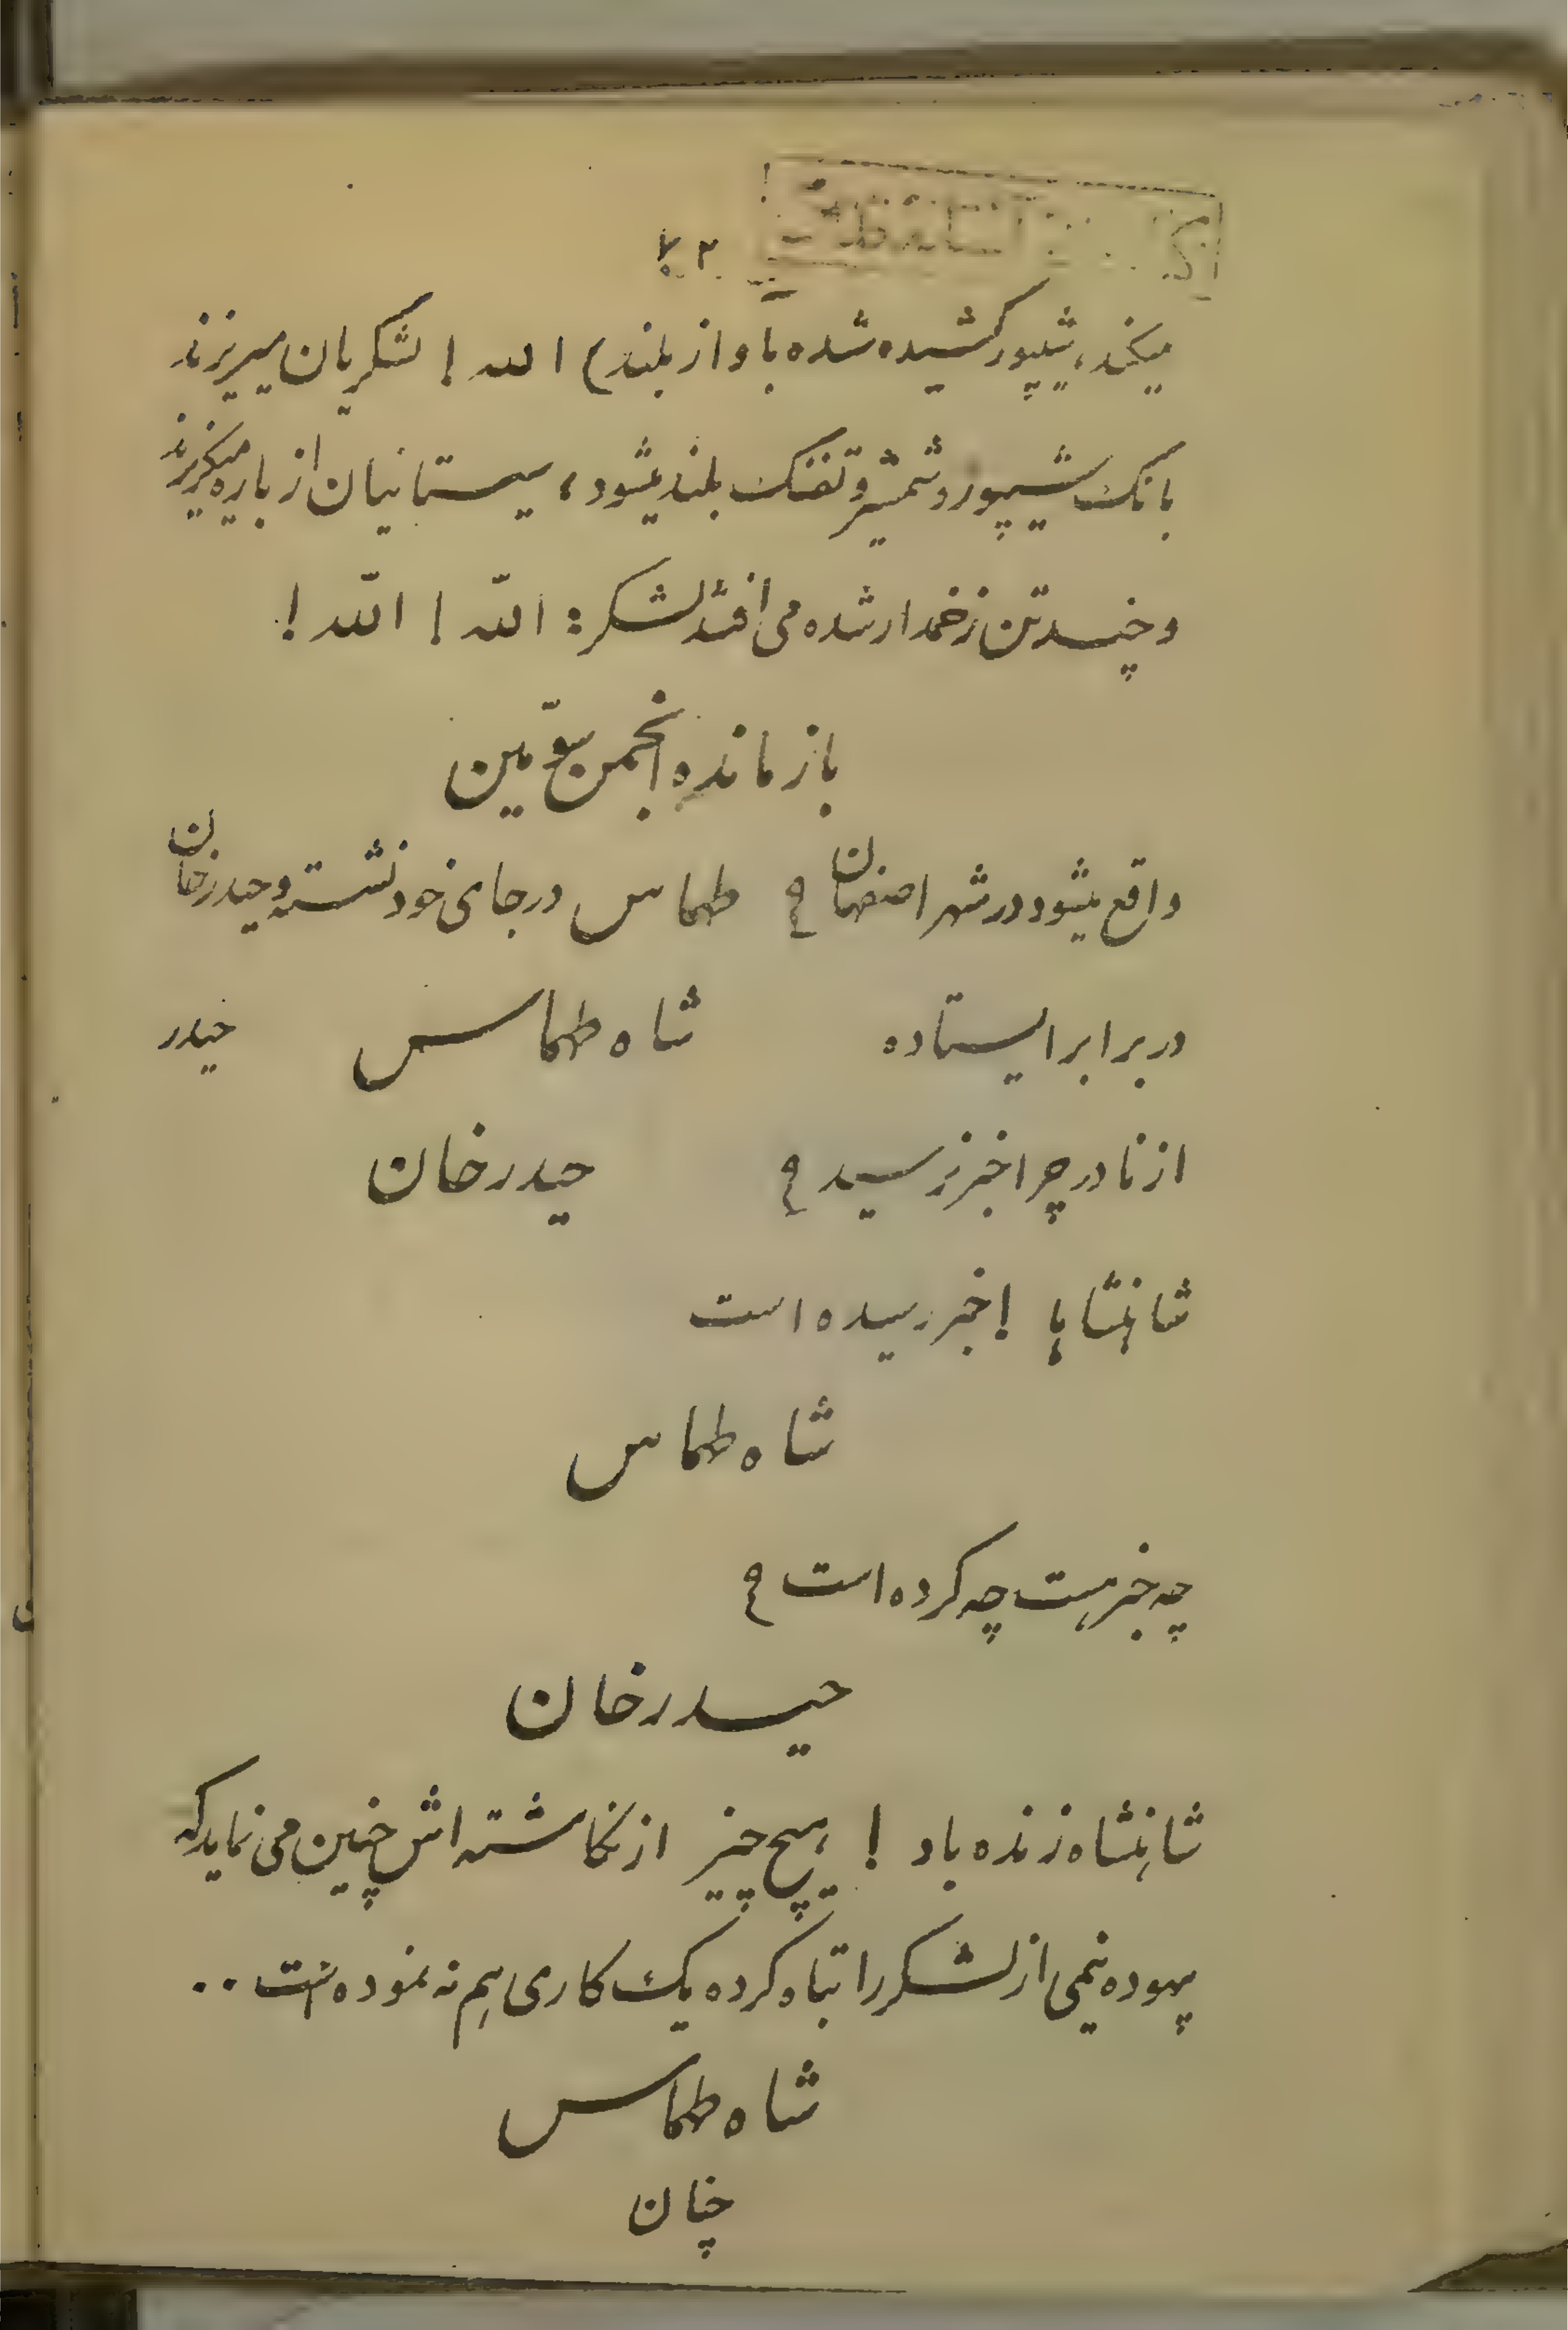 ۲۲
میکند، شیپور کشیده شده باواز بلند) الله ! لشکریان میریزند
بانک شیپور و شمشیر و تفنک بلند میشود، سیستانیان از باره میگریزند
و چند تن زخمدار شده می افتد لشکر: الله ! الله !
بازمانده انجمن سوّمین
واقع میشود در شهر اصفهان ؟ طهماس در جای خود نشسته و حیدرخان
در برابر ایستاده شاه طهماس حیدر
از نادر چرا خبر نرسید ؟ حیدرخان
شاهنشاها ! خبر رسیده است
شاه طهماس
چه خبر هست چه کرده است ؟
حیدرخان
شاهنشاه زنده باد ! هیچ چیز از نکاشته اش چنین می نماید که
بیهوده نیمی از لشکر را تباه کرده یک کاری هم نه نموده است ..
شاه طهماس
چنان